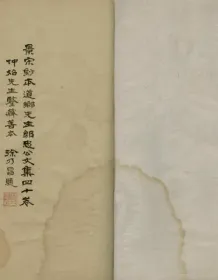 景宋鈔本道鄉先生鄒忠公文集四十卷
仲怡先生鑒藏善本 徐乃昌題